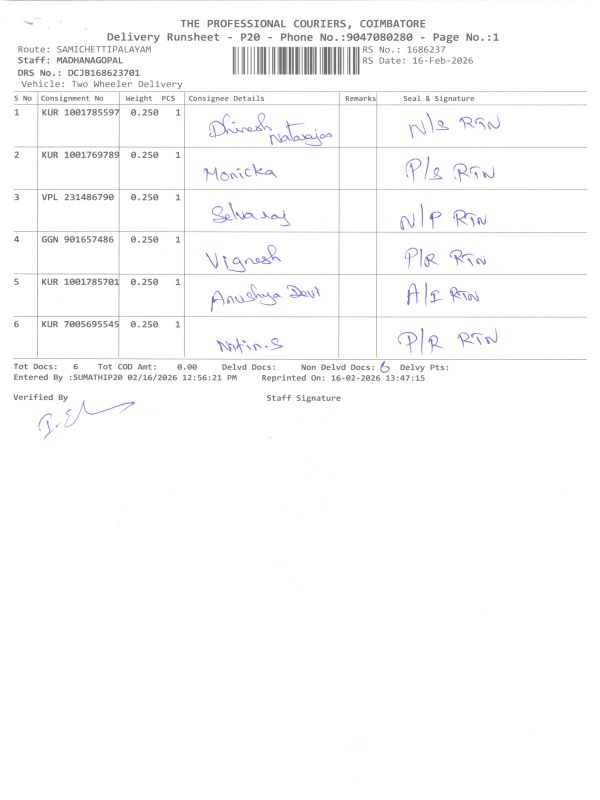 THE PROFESSIONAL COURIERS, COIMBATORE
Delivery Runsheet - P20 - Phone No.:9047080280 - Page No.:1
Route: SAMICHETTIPALAYAM RS No.: 1686237
Staff: MADHANAGOPAL RS Date: 16-Feb-2026
DRS No.: DCJB168623701
Vehicle: Two Wheeler Delivery
S No Consignment No Weight PCS Consignee Details Remarks Seal & Signature
1 KUR 1001785597 0.250 1 Dhinesh Natarajan N/S RTN
2 KUR 1001769789 0.250 1 Monicka P/S RTN
3 VPL 231486790 0.250 1 Selvaraj N/P RTN
4 GGN 901657486 0.250 1 Vignesh P/R RTN
5 KUR 1001785701 0.250 1 Anushya Devi A/I RTN
6 KUR 7005695545 0.250 1 Nitin.S P/R RTN
Tot Docs: 6 Tot COD Amt: 0.00 Delvd Docs: Non Delvd Docs: 6 Delvy Pts:
Entered By :SUMATHIP20 02/16/2026 12:56:21 PM Reprinted On: 16-02-2026 13:47:15
Verified By Staff Signature